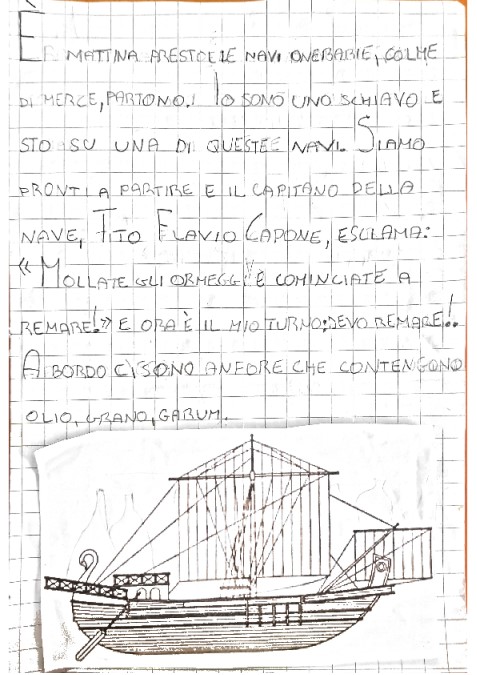 È MATTINA PRESTO E LE NAVI ONERARIE, COLME
DI MERCE, PARTONO. IO SONO UNO SCHIAVO E
STO SU UNA DI QUESTE NAVI. SIAMO
PRONTI A PARTIRE E IL CAPITANO DELLA
NAVE, TITO FLAVIO CAPONE, ESCLAMA:
«MOLLATE GLI ORMEGGI E COMINCIATE A
REMARE!» E ORA È IL MIO TURNO: DEVO REMARE!!
A BORDO CI SONO ANFORE CHE CONTENGONO
OLIO, GRANO, GARUM.